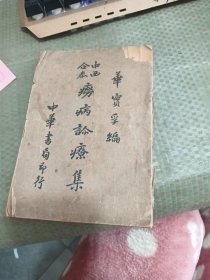 華實孚編
中西合參
癆病診療集
中華書局印行